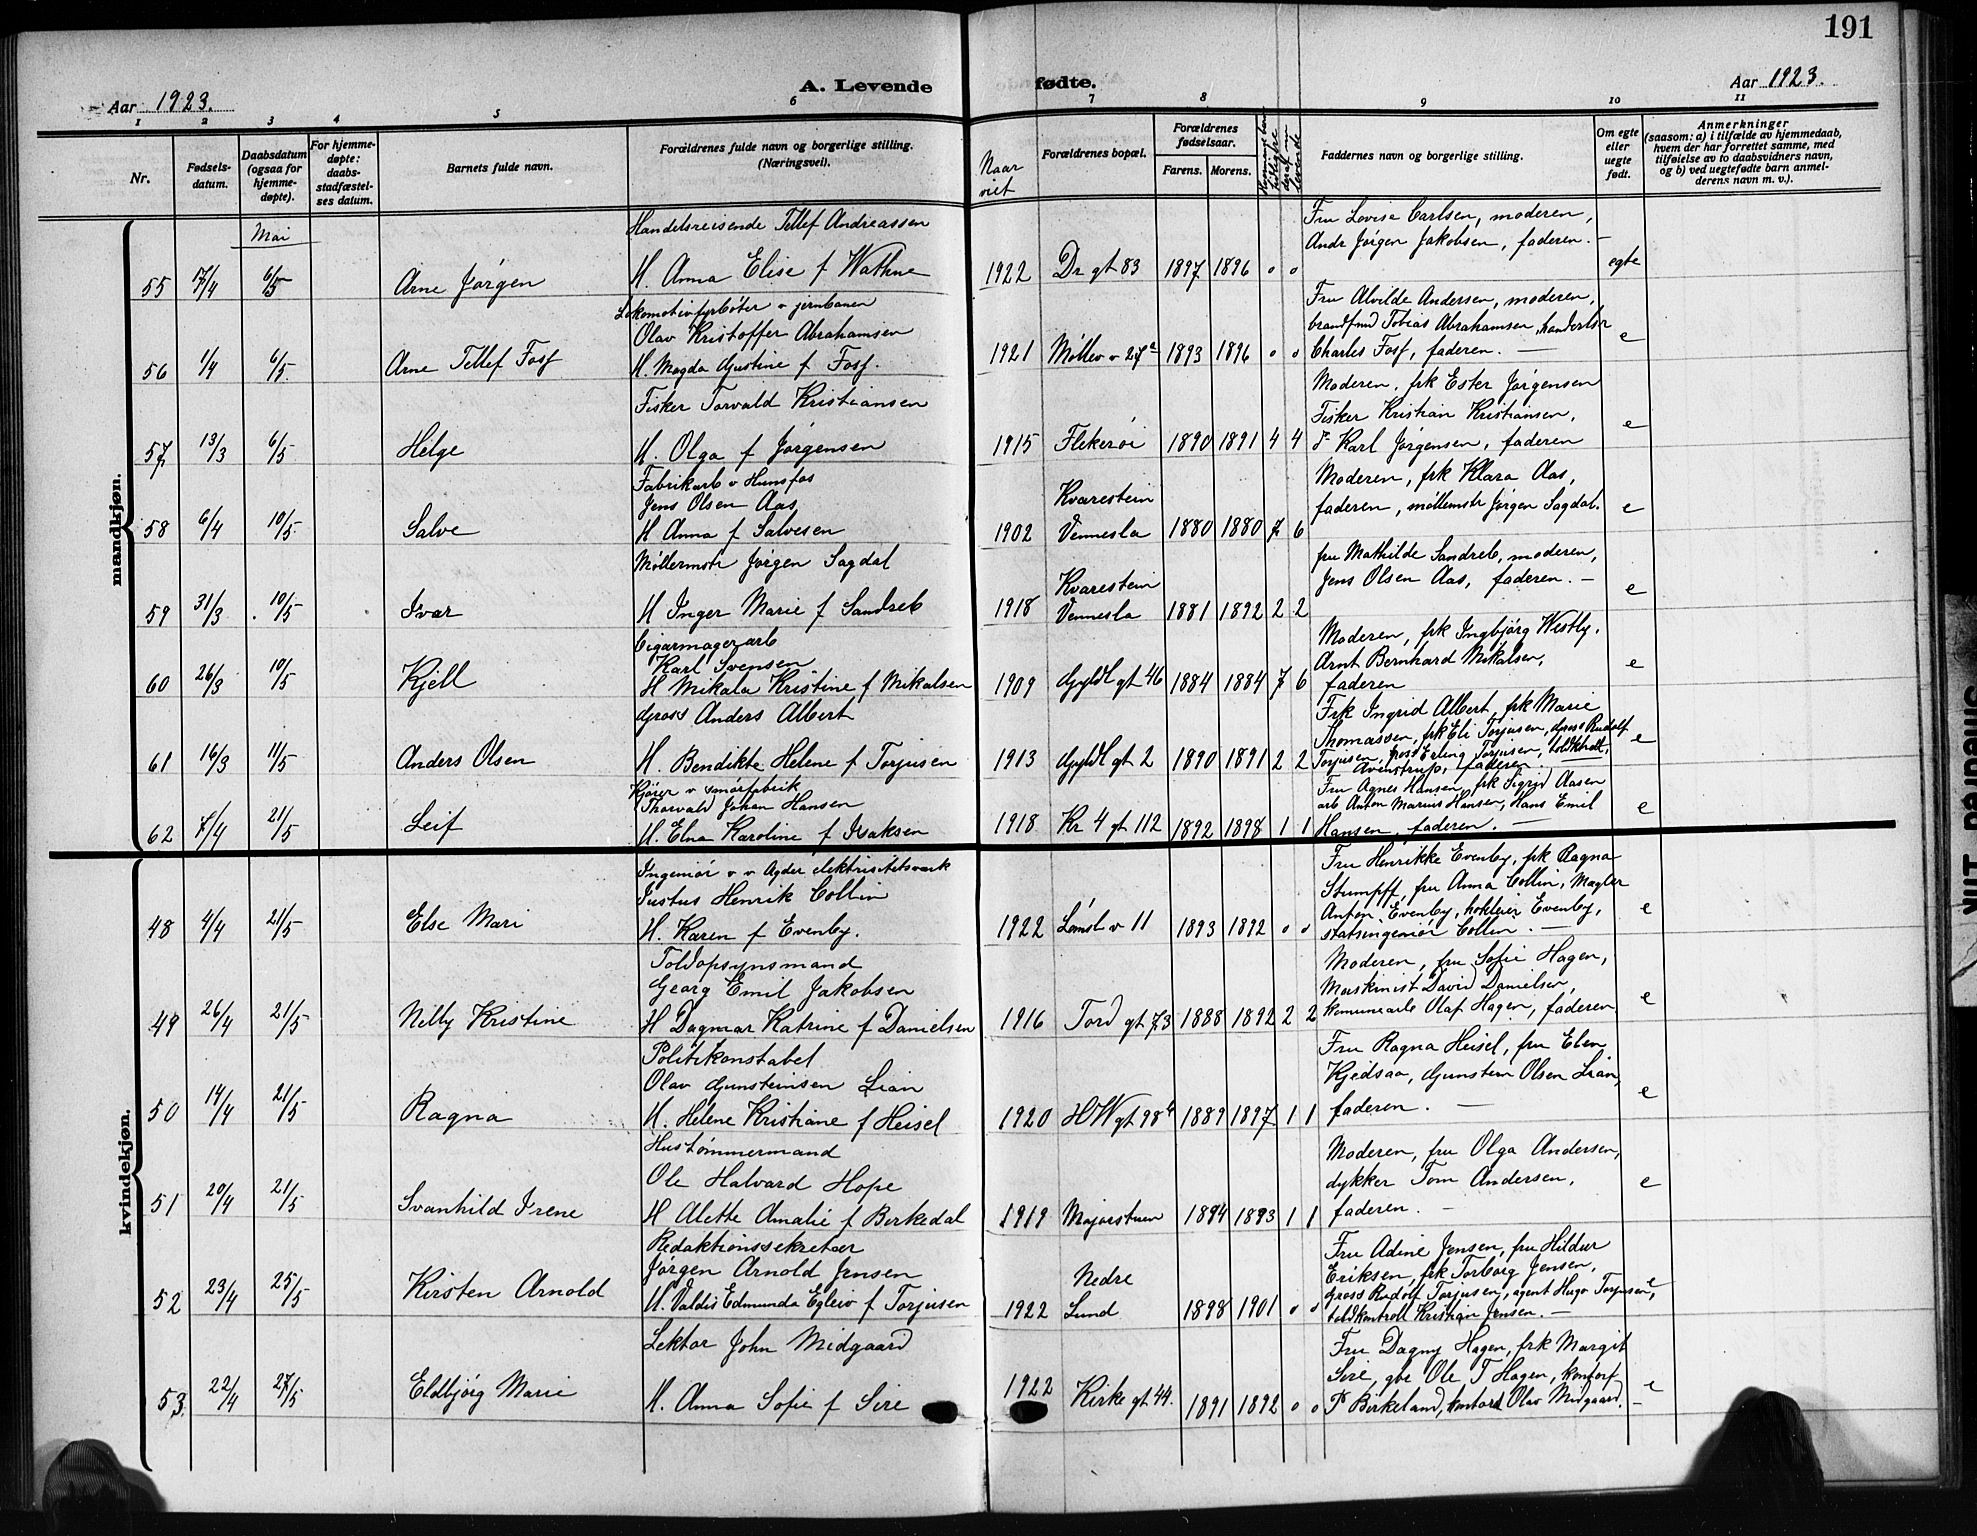 191
Aar 1923.
A. Levende
fødte.
Aar 1923.
1 2 3 4 5 6 7 8 9 10 11
Nr.
Fødsels-
datum.
Daabsdatum
(ogsaa for
hjemme-
døpte).
For hjemme-
døpte:
daabs-
stadfæstel-
ses datum.
Barnets fulde navn.
Forældrenes fulde navn og borgerlige stilling.
(Næringsvei).
Naar
viet
Forældrenes bopæl.
Forældrenes
fødselsaar.
Farens. Morens.
Faddernes navn og borgerlige stilling.
Om egte
eller
uegte
født.
Anmerkninger
(saasom: a) i tilfælde av hjemmedaab,
hvem der har forrettet samme, med
tilføielse av to daabsvidners navn,
og b) ved uegtefødte barn anmel-
derens navn m. v.).
mandkjøn.
Mai
Handelsreisende Tellef Andreassen
Fru Lovise Carlsen, moderen,
Andr Jørgen Jakobsen, faderen. —
55 17/4 6/5 Arne Jørgen H. Anna Elise f Wathne 1922 Dr gt 83 1897 1896 0 0 egte
Lokomotivfyrbøter v jernbanen
Olav Kristoffer Abrahamsen
Fru Alvilde Andersen, moderen,
brandfmd Tobias Abrahamsen,
56 1/4 6/5 Arne Tellef Fosf H. Magda Gustine f Fosf. 1921 Møllev v 27 1893 1896 0 0 Charles Fosf, faderen. — e
Fisker Torvald Kristiansen
Moderen, frk Ester Jørgensen
Fisker Kristian Kristiansen,
57 13/3 6/5 Helge H. Olga f Jørgensen 1915 Flekerøi 1890 1891 4 4 Karl Jørgensen, faderen e
Fabrikarb v Hunsfos
Jens Olsen Aas
Kvarestein
Moderen, frk Klara Aas,
faderen, møllemstr Jørgen Sagdal.
58 6/4 10/5 Salve H Anna f Salvesen 1902 Vennesla 1880 1880 7 6 e
Møllermstr Jørgen Sagdal
Kvarestein
fru Mathilde Sandreb, moderen,
Jens Olsen Aas, faderen. —
59 31/3 10/5 Ivar H Inger Marie f Sandreb 1918 Vennesla 1881 1892 2 2 e
Cigarmagerarb
Karl Svensen
Moderen, frk Ingbjørg Westby.
Arnt Bernhard Mikalsen,
60 26/3 10/5 Kjell H Mikala Kristine f Mikalsen 1909 Gyldl gt 46 1884 1884 7 6 faderen e
Gross Anders Albert
Frk Ingrid Albert, frk Marie
Thomassen, frk Eli Torjusen, gross Rudolf
61 16/3 11/5 Anders Olsen H. Bendikte Helene f Torjusen 1913 Gyldl gt 2 1890 1891 2 2 Torjusen, Erling Torjusen, toldktroll, e
Avenstrup, faderen. —
Kjører v smørfabrik
Thorvald Johan Hansen
Fru Agnes Hansen, frk Sigrid Aasen
arb Anton Marius Hansen, Hans Emil
62 7/4 21/5 Leif H. Elna Karoline f Isaksen 1918 Kr 4 gt 112 1892 1898 1 1 Hansen, faderen. — e
kvindekjøn.
Ingeniør v v Agder elektricitetsverk
Justus Henrik Collin
Fru Henrikke Evenby, frk Ragna
Stumpff, fru Anna Collin, Mægler
Anton Evenby, Evenby,
48 4/4 21/5 Else Mari H. Karen f Evenby. 1922 Lømsl v 11 1893 1892 0 0 statsingeniør Collin. — e
Toldopsynsmand
Georg Emil Jakobsen
Moderen, fru Sofie Hagen,
Maskinist David Danielsen,
49 26/4 21/5 Nelly Kristine H Dagmar Katrine f Danielsen 1916 Tord gt 73 1888 1892 2 2 komunearb Olaf Hagen, faderen e
Politikonstabel
Olav Gunsteinsen Lian
Fru Ragna Heisel, fru Elen
Kjedsaa, Gunstein Olsen Lian,
50 14/4 21/5 Ragna H. Helene Kristiane f Heisel 1920 H W gt 98 1889 1897 1 1 faderen. — e
Hustømmermand
Ole Halvard Hope
Moderen, fru Olga Andersen,
dykker Tom Andersen,
51 20/4 21/5 Svanhild Irene H Alette Amalie f Berkedal 1919 Majorstuen 1894 1893 1 1 faderen. — e
Redaktionssekretær
Jørgen Arnold Jensen
Nedre
Fru Adine Jensen, fru Hildur
Eriksen, frk Torborg Jensen,
gross Rudolf Torjusen, agent Hugo Torjusen,
52 23/4 25/5 Kirsten Arnold H. Valdis Edmunda Egleiv f Torjusen 1922 Lund 1898 1901 0 0 toldkontroll Kristian Jensen. — e
Lektor John Midgaard
Fru Dagny Hagen, frk Margit
Sire, gbr Ole T Hagen, kontorf
53. 22/4 27/5 Eldbjørg Marie H. Anna Sofie f Sire 1922 Kirke gt 44. 1891 1892 0 0 P Birkeland, kontord Olav Midgaard. — e